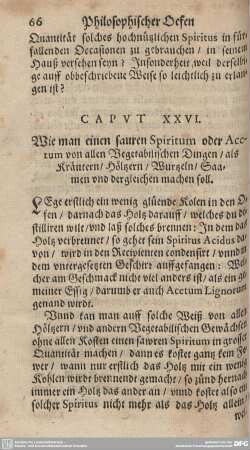 66 Philosophischer Oefen
Quantität solches hochnützlichen Spiritus in für-
fallenden Occasionen zu gebrauchen / in seinem
Hauß versehen seyn? Insonderheit / weil derselbi-
ge auff obbeschriebene Weise so leichtlich zu erlan-
gen ist?
CAPVT XXVI.
Wie man einen sauren Spiritum oder Ace-
tum von allen Vegetabilischen Dingen / als
Kräutern / Höltzern / Wurtzeln / Saa-
men vnd dergleichen machen soll.
LEge erstlich ein wenig glüende Kolen in den O-
fen / darnach das Holtz darauff / welches du di-
stilliren wilt / vnd laß solches brennen: In dem das
Holtz verbrennet / so gehet sein Spiritus Acidus da-
von / wird in den Recipienten condensirt / vnnd in
dem vntergesetzten Geschirr auffgefangen: Wel-
cher am Geschmack nicht viel anders ist / als ein ge-
meiner Essig / darumb er auch Acetum Lignorum
genand wird.
Vnnd kan man auff solche Weiß von allen
Höltzern / vnd andern Vegetabilischen Gewächsen
ohne allen Kosten einen sawren Spiritum in grosser
Quantität machen / dann es kostet gantz kein Fe-
wer / wann nur erstlich das Holtz mit ein wenig
Kohlen wird brennendt gemacht / so zünd hernach
immer ein Holtz das ander an / vnnd kostet also ein
solcher Spiritus nicht mehr als das Holtz allein /